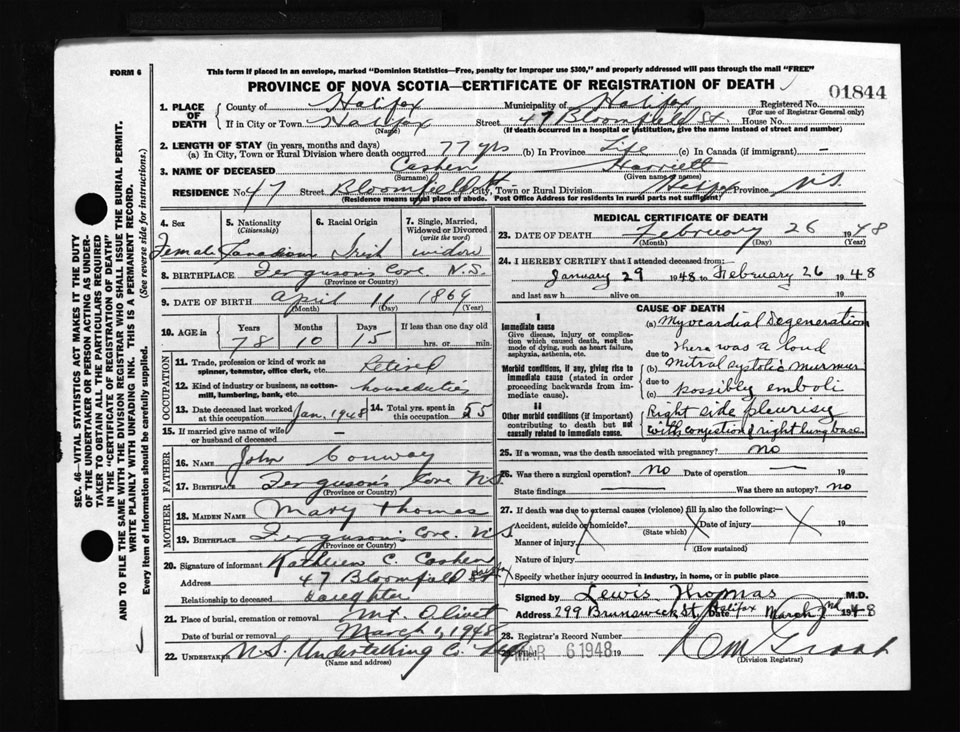 FORM 6
This form if placed in an envelope, marked "Dominion Statistics—Free, penalty for improper use $300," and properly addressed will pass through the mail "FREE"
PROVINCE OF NOVA SCOTIA—CERTIFICATE OF REGISTRATION OF DEATH
01844
1. PLACE OF DEATH
County of Halifax Municipality of Halifax Registered No.
(For use of Registrar General only)
If in City or Town Halifax Street 47 Bloomfield St House No.
(Name) (If death occurred in a hospital or institution, give the name instead of street and number)
2. LENGTH OF STAY (in years, months and days)
(a) In City, Town or Rural Division where death occurred 77 yrs (b) In Province Life (c) In Canada (if immigrant) —
3. NAME OF DECEASED Cashen Harriett
(Surname) (Given name or names)
RESIDENCE No. 47 Street Bloomfield St City, Town or Rural Division Halifax Province N.S.
(Residence means usual place of abode. Post Office Address for residents in rural parts not sufficient)
4. Sex Female
5. Nationality (Citizenship) Canadian
6. Racial Origin Irish
7. Single, Married, Widowed or Divorced (write the word) widow
8. BIRTHPLACE Ferguson's Cove N.S.
(Province or Country)
9. DATE OF BIRTH April 11 1869
(Month) (Day) (Year)
10. AGE in Years Months Days If less than one day old
78 10 15 hrs. or min.
OCCUPATION
11. Trade, profession or kind of work as spinner, teamster, office clerk, etc. Retired
12. Kind of industry or business, as cotton-mill, lumbering, bank, etc. houseduties
13. Date deceased last worked at this occupation Jan. 1948
14. Total yrs. spent in this occupation 55
15. If married give name of wife or husband of deceased —
FATHER
16. NAME John Conway
17. BIRTHPLACE Ferguson's Cove N.S.
(Province or Country)
MOTHER
18. MAIDEN NAME Mary Thomas
19. BIRTHPLACE Ferguson's Cove. N.S
(Province or Country)
20. Signature of informant Kathleen C. Cashen
Address 47 Bloomfield St
Relationship to deceased daughter
21. Place of burial, cremation or removal Mt. Olivet
Date of burial or removal March 1, 1948
22. UNDERTAKER N.S. Undertaking Co. Ltd
(Name and address)
MEDICAL CERTIFICATE OF DEATH
23. DATE OF DEATH February 26 1948
(Month) (Day) (Year)
24. I HEREBY CERTIFY that I attended deceased from:
January 29 1948 to February 26 1948
and last saw h alive on 19
CAUSE OF DEATH
I
Immediate cause
Give disease, injury or complication which caused death, not the mode of dying, such as heart failure, asphyxia, asthenia, etc.
(a) Myocardial Degeneration
due to There was a loud
Morbid conditions, if any, giving rise to immediate cause (stated in order proceeding backwards from immediate cause).
(b) Mitral systolic murmur
due to
(c) possibly emboli
II
Other morbid conditions (if important) contributing to death but not causally related to immediate cause.
Right side pleurisy
with congestion of right lung base
25. If a woman, was the death associated with pregnancy? no
26. Was there a surgical operation? no Date of operation — 19
State findings — Was there an autopsy? no
27. If death was due to external causes (violence) fill in also the following:—
Accident, suicide or homicide? Date of injury 19
(State which)
Manner of injury
(How sustained)
Nature of injury
Specify whether injury occurred in industry, in home, or in public place
Signed by Lewis Thomas M.D.
Address 299 Brunswick St Halifax Date March 2nd 1948
28. Registrar's Record Number
29. Filed MAR 6 1948 19
(Division Registrar)
SEC. 46—VITAL STATISTICS ACT MAKES IT THE DUTY OF THE UNDERTAKER OR PERSON ACTING AS UNDERTAKER TO OBTAIN ALL THE PARTICULARS REQUIRED IN THE "CERTIFICATE OF REGISTRATION OF DEATH" AND TO FILE THE SAME WITH THE DIVISION REGISTRAR WHO SHALL ISSUE THE BURIAL PERMIT.
WRITE PLAINLY WITH UNFADING INK. THIS IS A PERMANENT RECORD.
Every item of information should be carefully supplied. (See reverse side for instructions.)